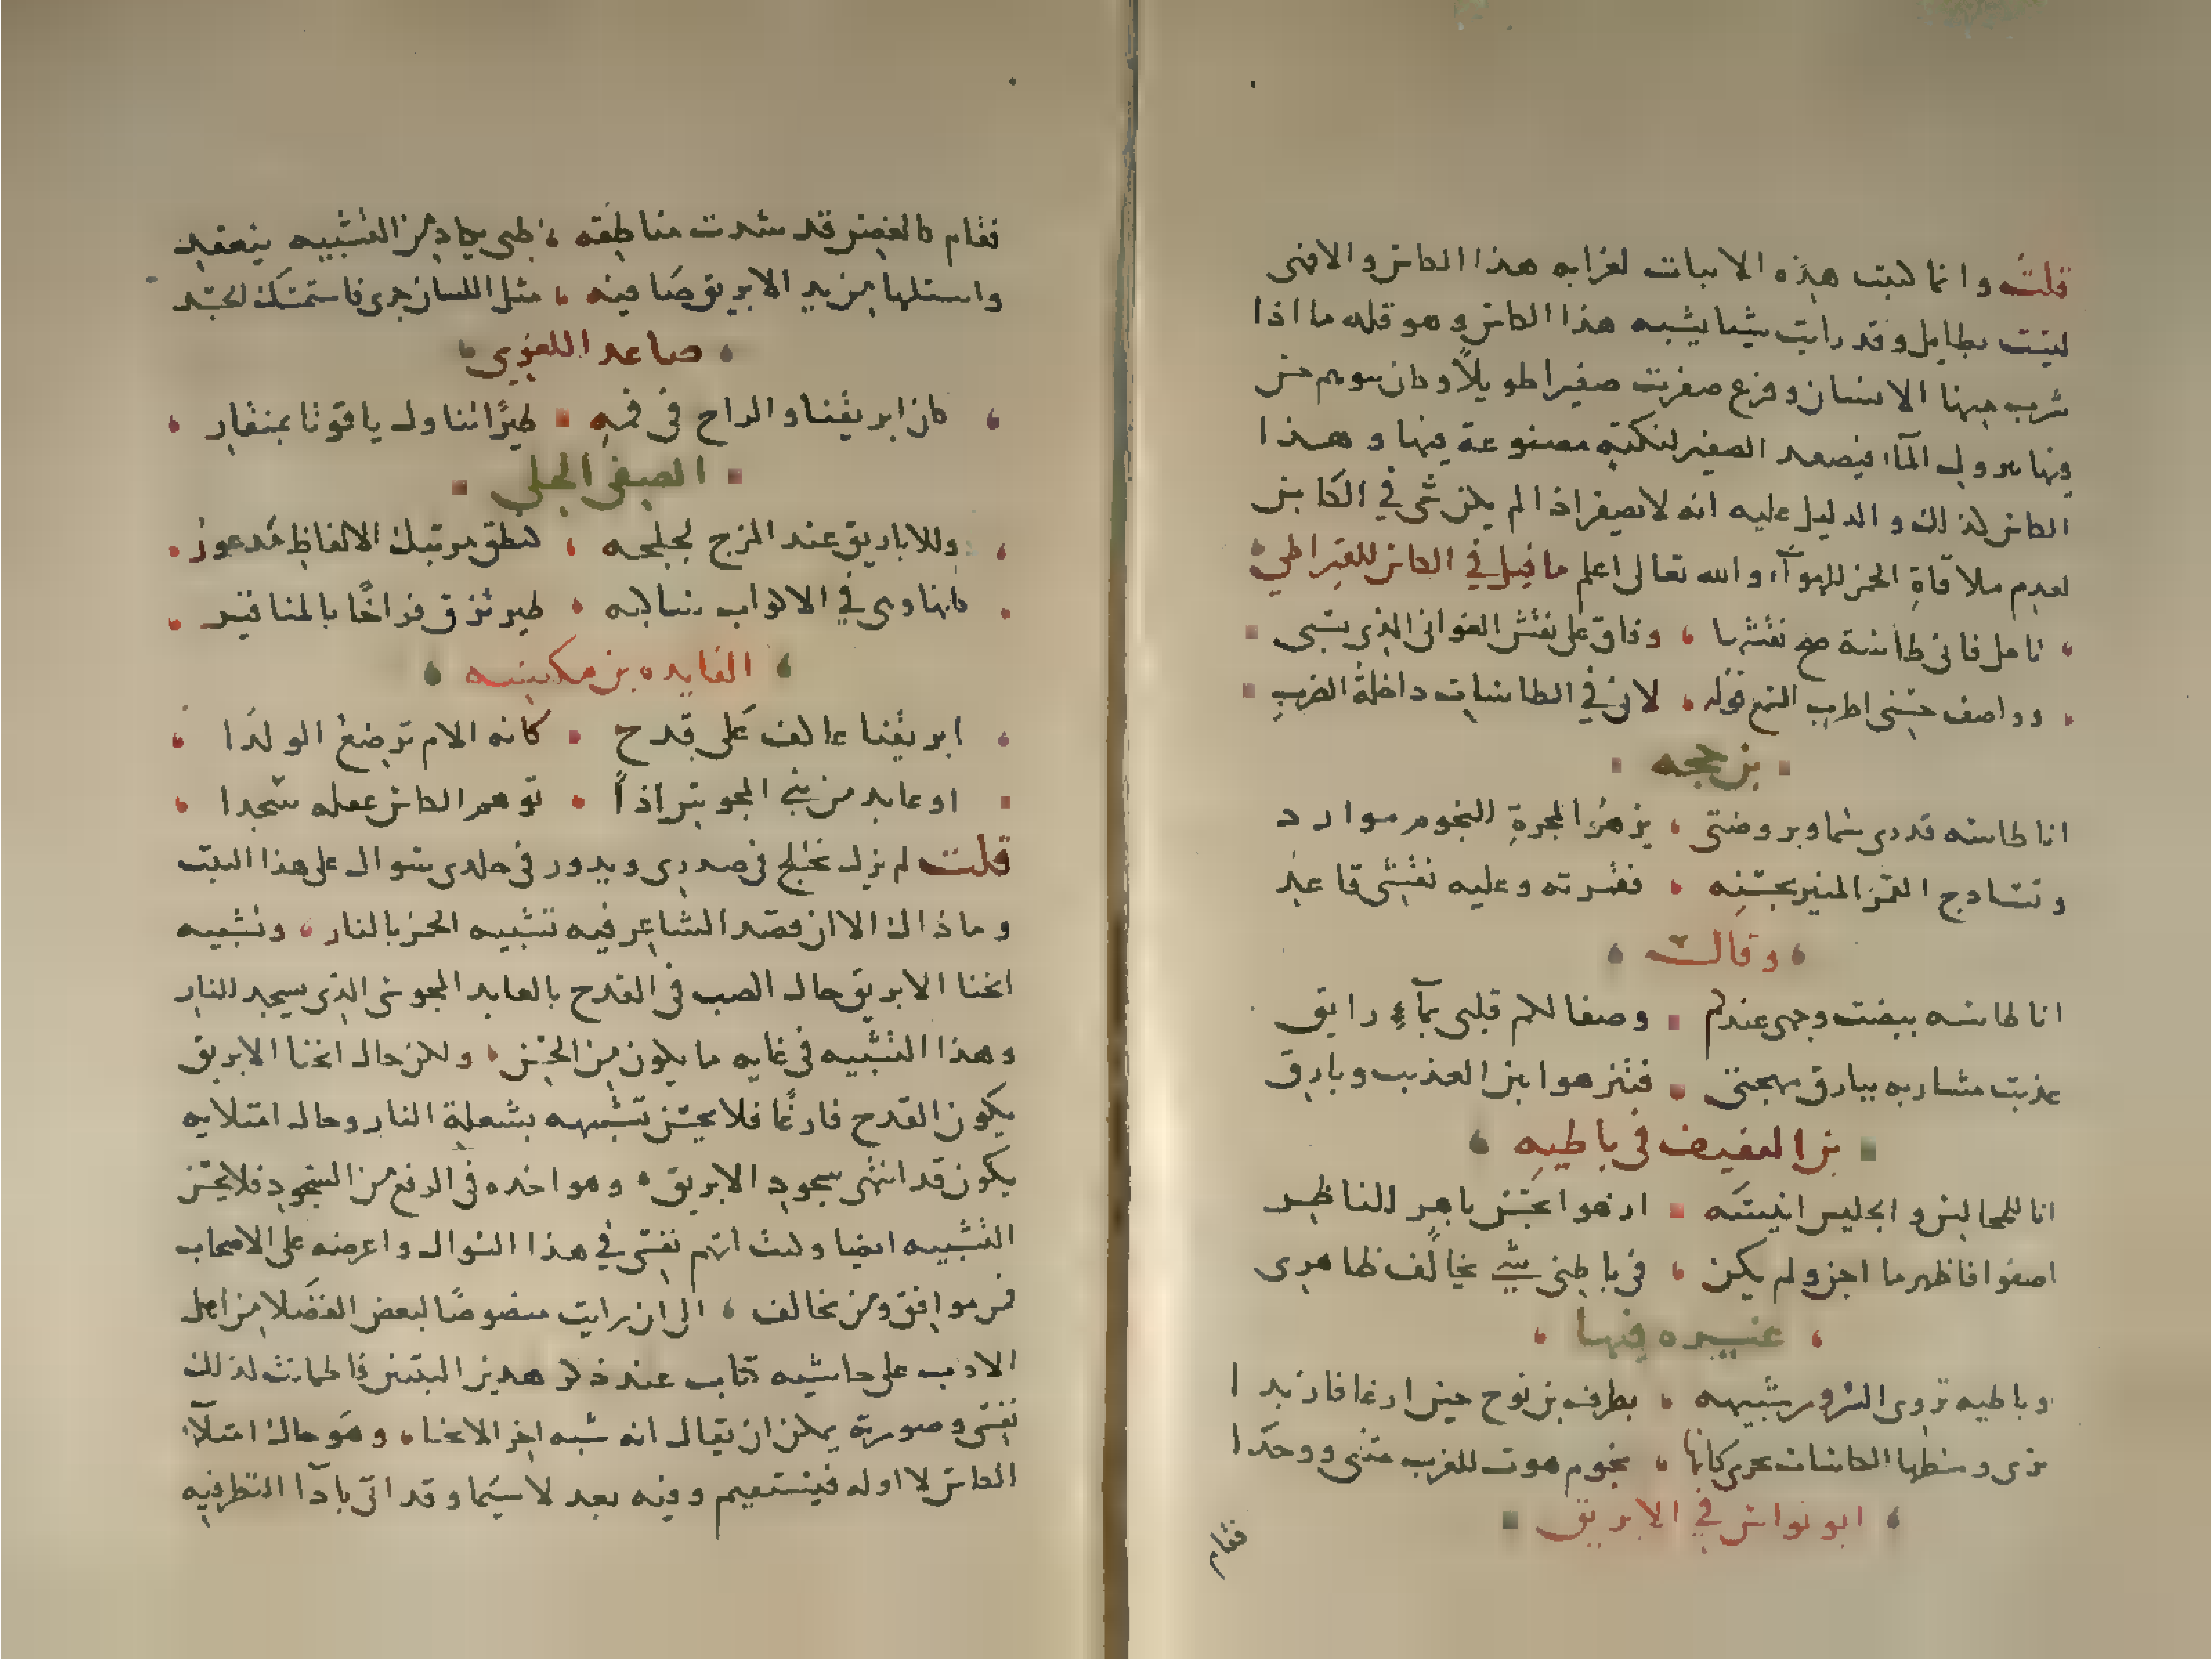 قلت وانما كتبت هذه الابيات لغرابه هذا الكاس والافهى
ليست بطايل وقد رايت شيئا يشبه هذا الكاس وهو قله ما اذا
شرب منها الانسان وفرغ صفرت صفيرا طويلاً وكان
منها بدولب المآء فيصعد الصفير لنكتة مصنوعة فيها وهذا
الكاس كذلك والدليل عليه انه لا يصفر اذا لم يكن شى في الكاس
لعدم ملاقاة الخمر للهوآء والله تعالى اعلم ما قيل في الكاس للقيراطي
تامل فانى طاسة صح نقشها وفاق على نقش الغوانى الذى يسبى
وواصف حسنى اطرب السمع قوله لان في الطاسات داخلة الضرب
بن حجه
انا طاسه قد دى سما وبروضتى بزهر المجرة للنجوم موارد
القمر المنير بحسنه فقمرته وعليه نفسى قاعد
وقال
انا طاسه بيضت وجهى عندكم وصفا لكم قلبى بمآء رايق
عذبت مشاربه ببارق مهجتى فتنزهوا بين العذيب وبارق
بن العفيف فى باطيه
انا للمجالس والجليس انيسة ازهوا بحسن باهر للناظر
اصفوا فاظهر ما اجن ولم يكن فى باطنى شي يخالف ظاهرى
غيره فيها
وباطيه تروى السرور شبيهه بطرف بن نوح حين ارغا فازبدا
ترى وسطها الكاسات تجرى كانها نجوم هوت للغرب مثنى ووحدا
ابو نواس في الابريق
فقام
فقام كالغصن قد شدت مناطقه ظبى يكاد من التشبيه ينعقد
واستلها من يد الابريق صافيه مثل اللسان جرى فاستمسك الجسد
صاعد اللغوى
كان ابريقنا والراح فى فمه طيرًا تناول ياقوتا بمنقار
الصفى الحلى
وللاباريق عند المزج لجلجه كنطق مرتبك الالفاظ مذعور
كانها وهى في الاكواب ساكبه طير تزق فراخًا بالمناقير
الفايده بن مكينسه
ابريقنا عاكف على قدح كانه الام ترضع الولدا
او عابد من بني المجوس اذا توهم الكاس شعله سجدا
قلت لم يزل يختلج فى صدرى ويدور فى خلدى سوال على هذا البيت
وما ذاك الا ان قصد الشاعر فيه تشبيه الخمر بالنار وتشبيه
انحنا الابريق حال الصب فى القدح بالعابد المجوسى الذى يسجد للنار
وهذا التشبيه فى غايه ما يكون من الحسن ولكن حال انحنا الابريق
يكون القدح فارغًا فلا يحسن تشبيهه بشعلة النار وحال امتلايه
يكون قد انتهى سجود الابريق وهو اخده فى الرفع من السجود فلا يحسن
التشبيه ايضا وكنت اتهم نفسى في هذا السوال واعرضه على الاصحاب
فمن موافق ومن مخالف الى ان رايت منصوصًا لبعض الفضلا من اهل
الادب على حاشيه كتاب عند ذكر هدين البيتين فاطمانت لذلك
نفسى وصورته يمكن ان يقال انه شبه اخر الانحنا وهو حال امتلآء
الكاس لا اوله فيستقيم وفيه بعد لا سيما وقد اتى باذا الظرفيه